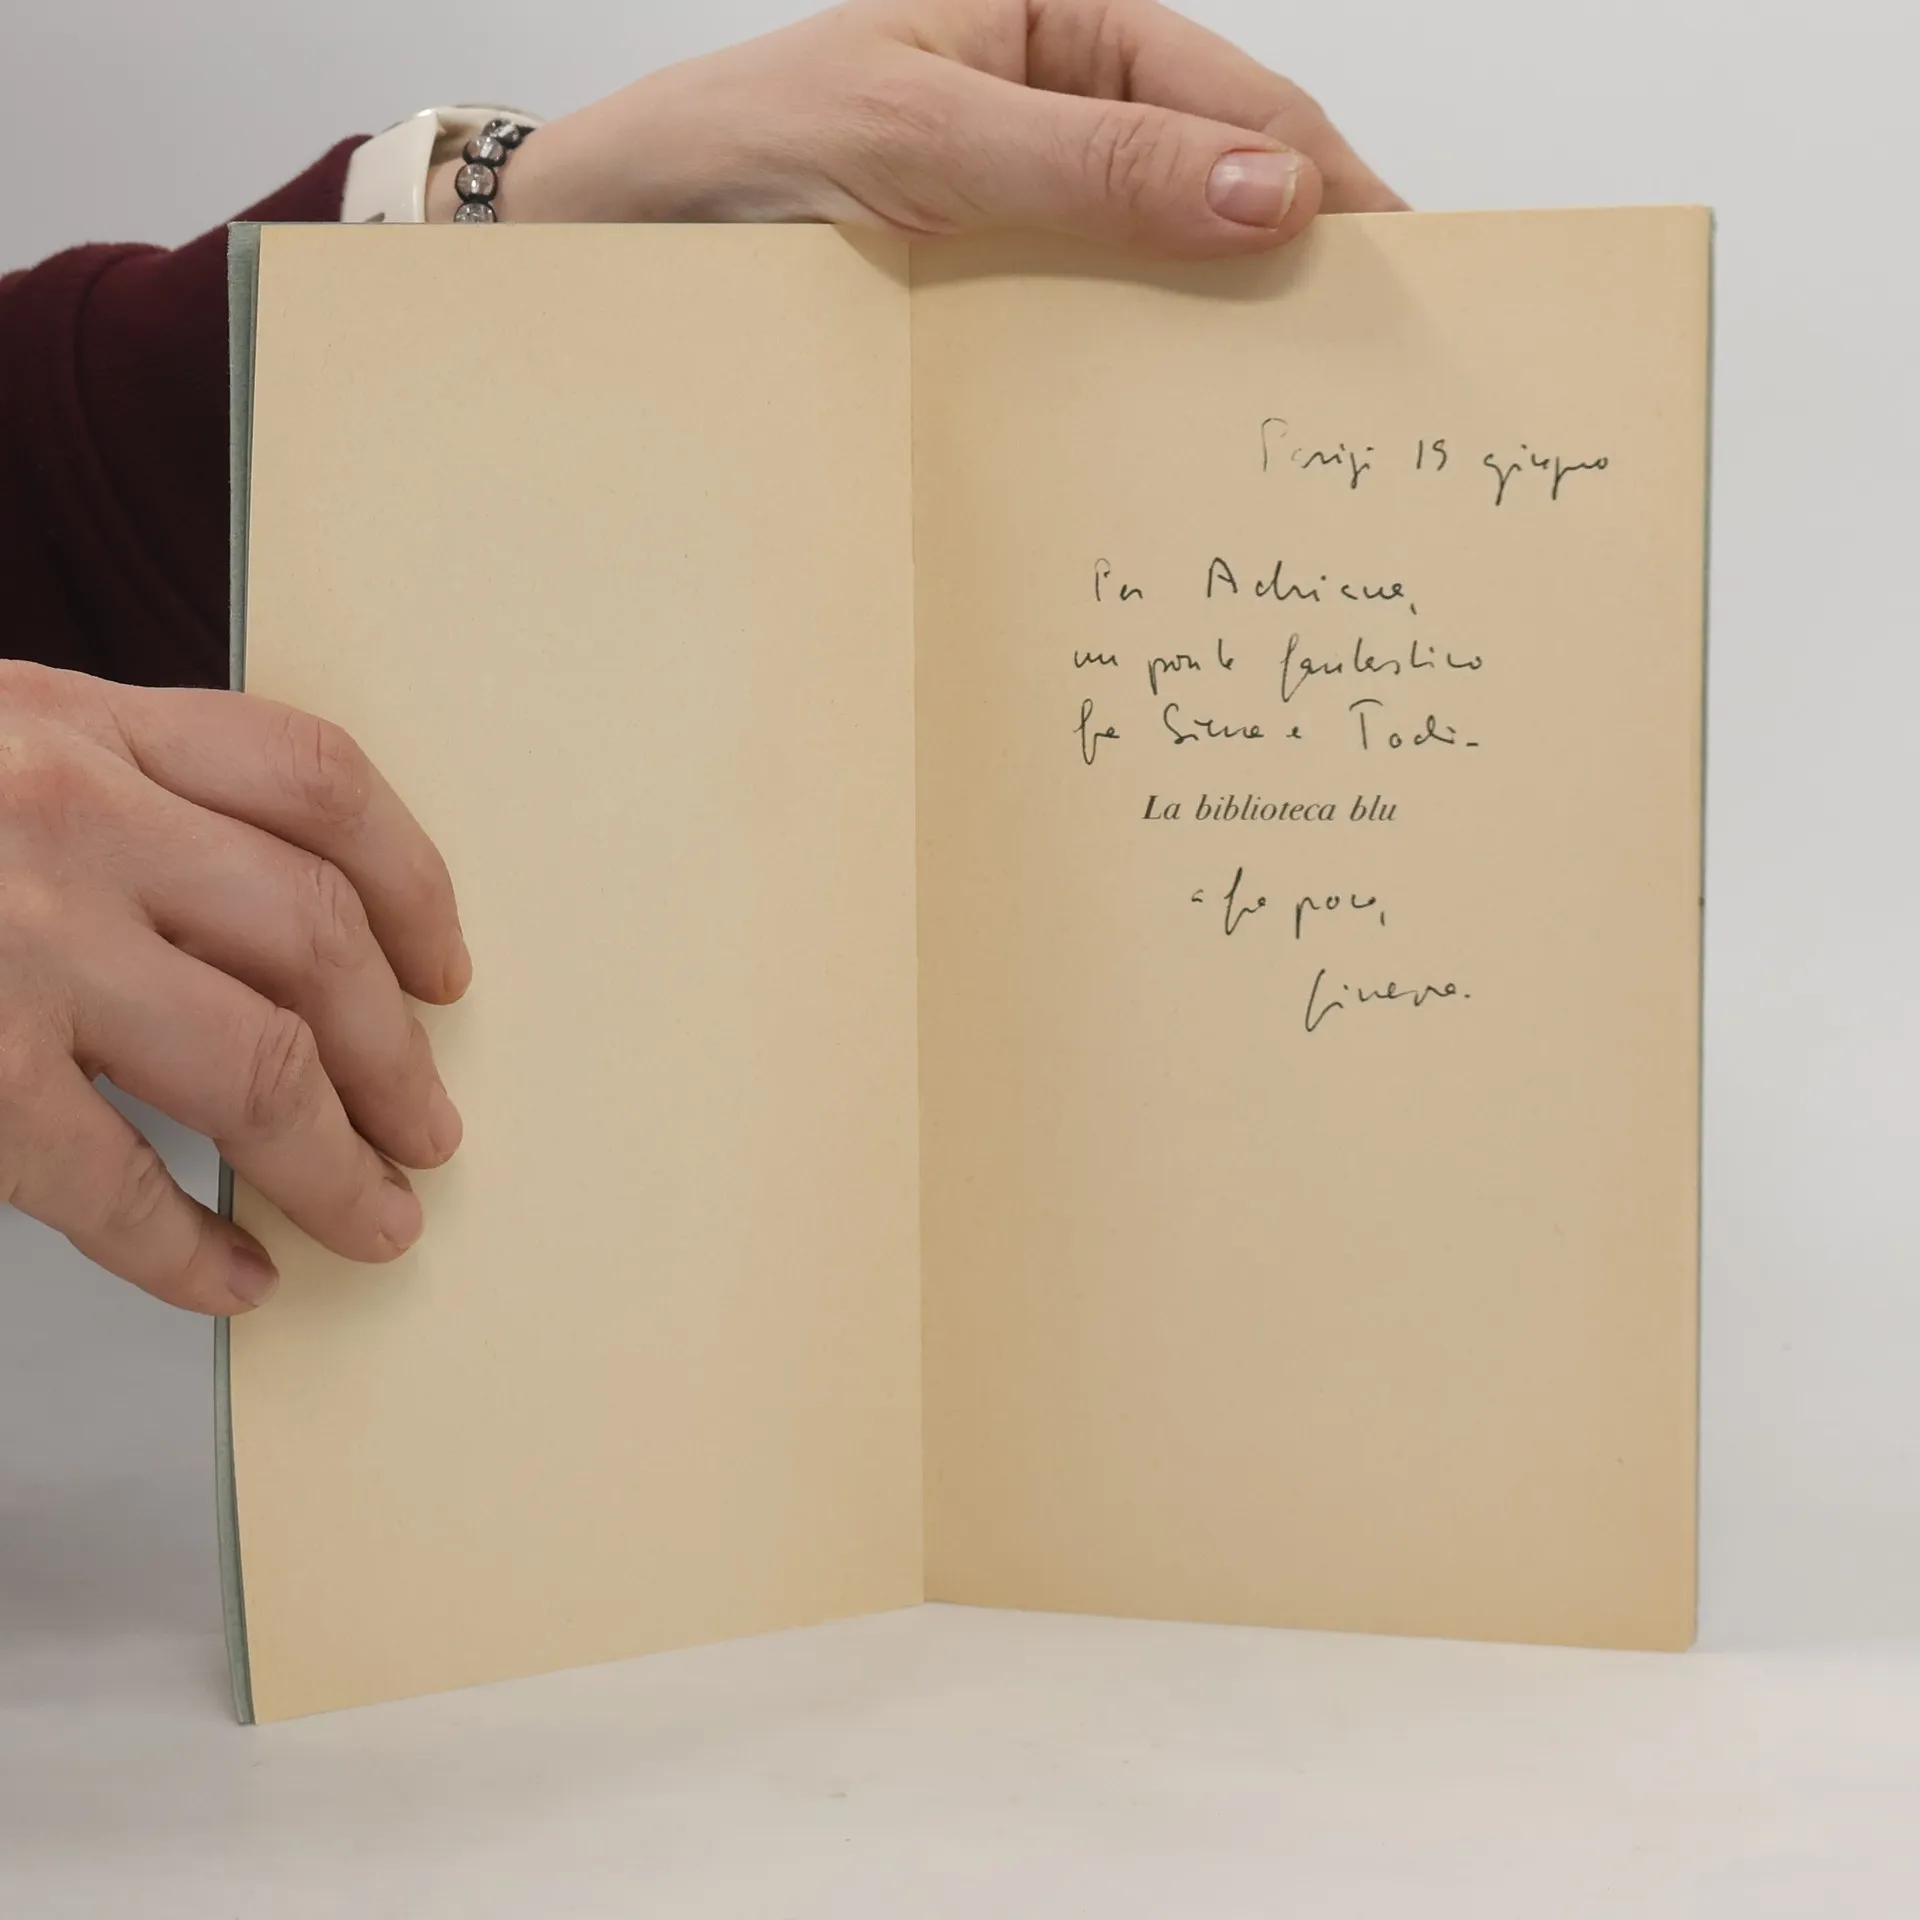 Parigi 19 giugno
Per Adriana,
un ponte fantastico
fra Siena e Todi-
La biblioteca blu
a fra poco,
Ginevra.